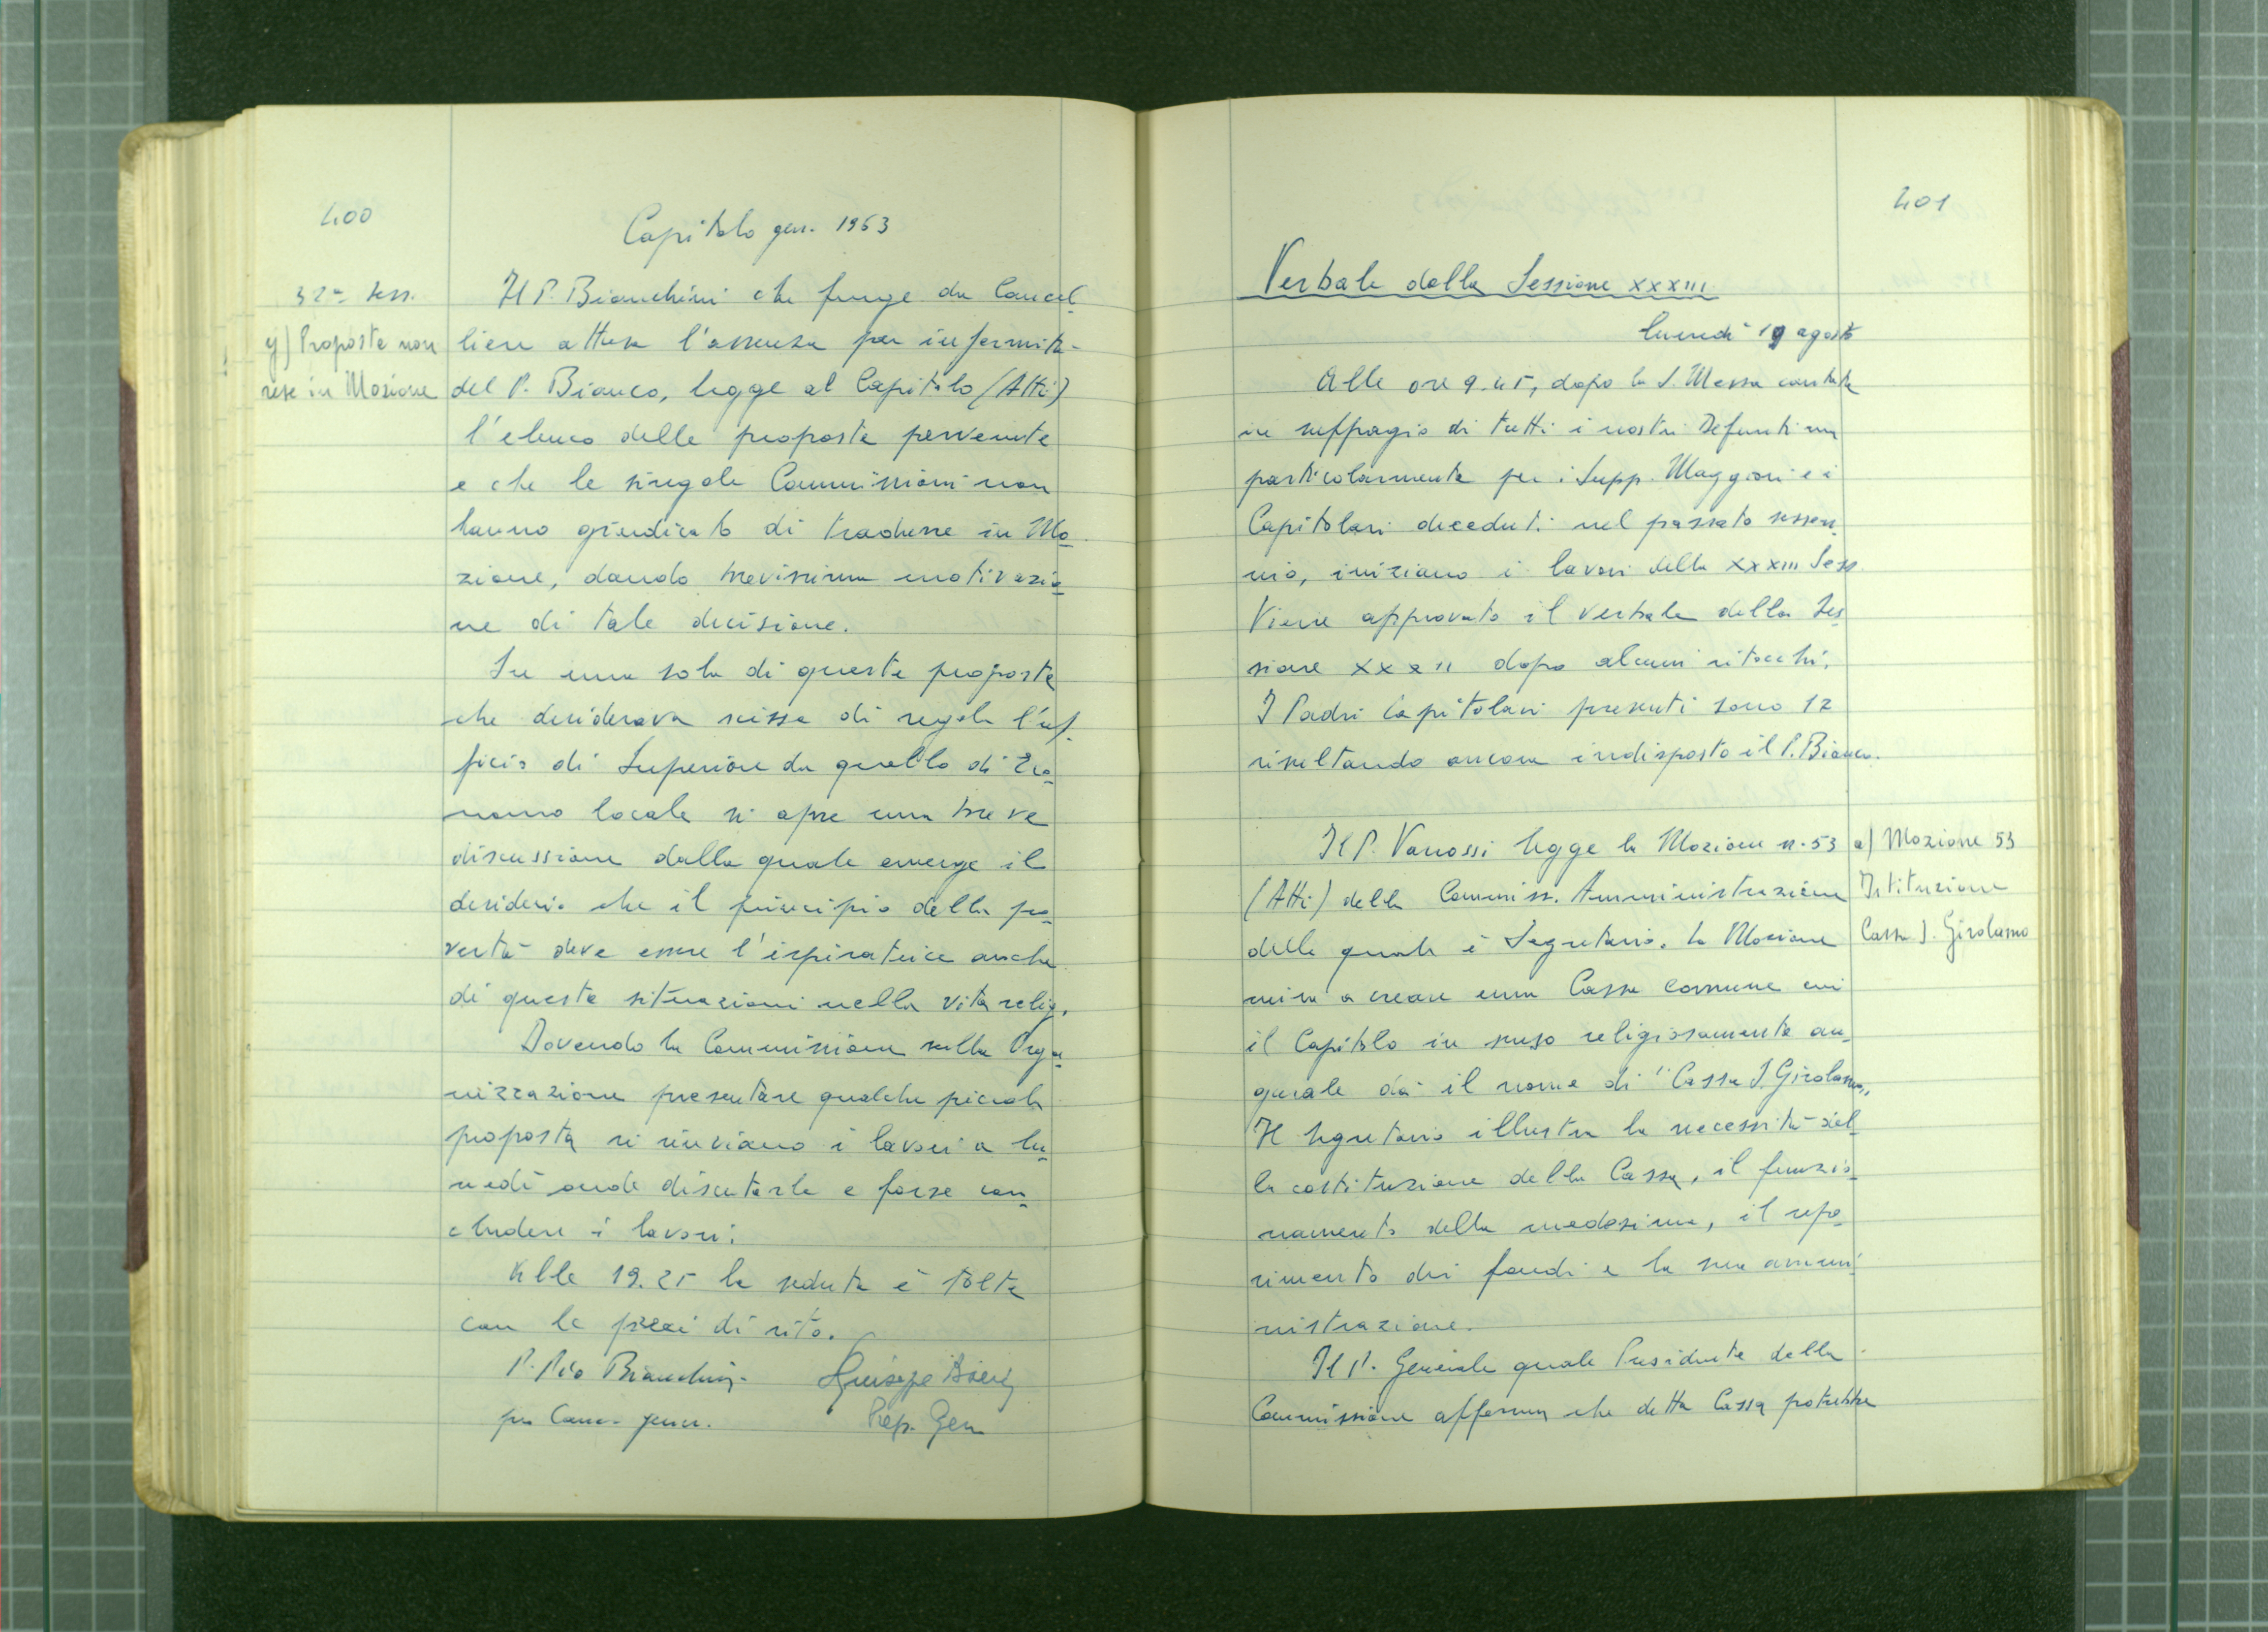 400
Capitolo gen. 1963
32ª Sess.
g) Proposte non
rese in Mozione
Il P. Bianchini che funge da Cancel_
liere attesa l'assenza per infermità
del P. Bianco, legge al Capitolo (Atti)
l'elenco delle proposte pervenute
e che le singole Commissioni non
hanno giudicato di tradurre in Mo_
zione, dando brevissima motivazio_
ne di tale decisione.
Su una sola di queste proposte
che desiderava scissa di regola l'uf_
ficio di Superiore da quello di Eco_
nomo locale si apre una breve
discussione dalla quale emerge il
desiderio che il principio della po_
vertà deve essere l'ispiratrice anche
di queste situazioni nella vita relig.
Dovendo la Commissione sulla Orga_
nizzazione presentare qualche piccola
proposta si rinviano i lavori a lu_
nedì onde discuterle e forse con_
cludere i lavori.
Alle 19.25 la seduta è tolta
con le preci di rito.
P. Pio Bianchini
Giuseppe Boeris
per Canc. gener.
Prep. Gen
401
Verbale della Sessione XXXIII
lunedì 19 agosto
Alle ore 9.45, dopo la S. Messa cantata
in suffragio di tutti i nostri Defunti
particolarmente per i Supp. Maggiori e i
Capitolari deceduti nel passato sessen_
nio, iniziano i lavori della XXXIII Sess.
Viene approvato il verbale della Ses_
sione XXXII dopo alcuni ritocchi.
I Padri Capitolari presenti sono 12
risultando ancora indisposto il P. Bianco.
Il P. Vanossi legge la Mozione n. 53
a) Mozione 53
Istituzione
Cassa S. Girolamo
(Atti) della Commiss. Amministrazione
della quale è Segretario. La Mozione
mira a creare una Cassa comune cui
il Capitolo in senso religiosamente au_
gurale dà il nome di "Cassa S. Girolamo„
Il Segretario illustra la necessità del_
la costituzione della Cassa, il funzio_
namento della medesima, il repe_
rimento dei fondi e la sua ammi_
nistrazione.
Il P. Generale quale Presidente della
Commissione afferma che detta Cassa potrebbe